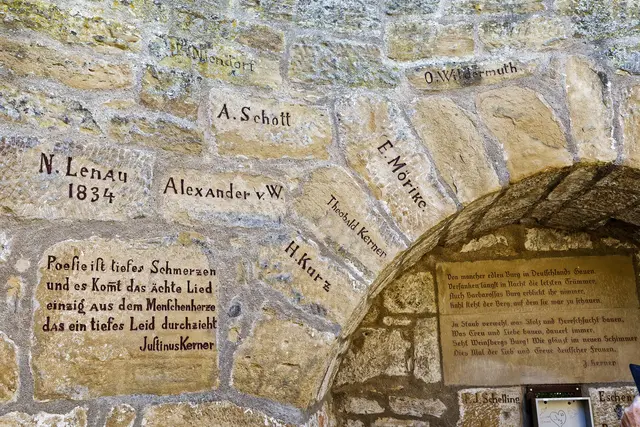 Niendorf
O. Wildermuth
A. Schott
E. Mörike.
N. Lenau
1834
Alexander v. W.
Theobald Kerner
H. Kurz
Poesie ist tiefes Schmerzen
und es komt das ächte Lied
einzig aus dem Menschenherze
das ein tiefes Leid durchzieht
Justinus Kerner
Von mancher edlen Burg in Deutschlands Gauen
Versunken längst in Nacht die letzten Trümmer,
Auch Barbarossas Burg erblickt ihr nimmer,
Kahl steht der Berg, auf dem sie war zu schauen.
In Staub verweht was Stolz und Herrschsucht bauen,
Was Treu und Liebe bauen, dauert immer,
Seht Weinsbergs Burg! Wie glänzt im neuen Schimmer
Dies Mal der Lieb und Treue deutscher Frauen.
J. Kerner
F. J. Schelling
Eschen